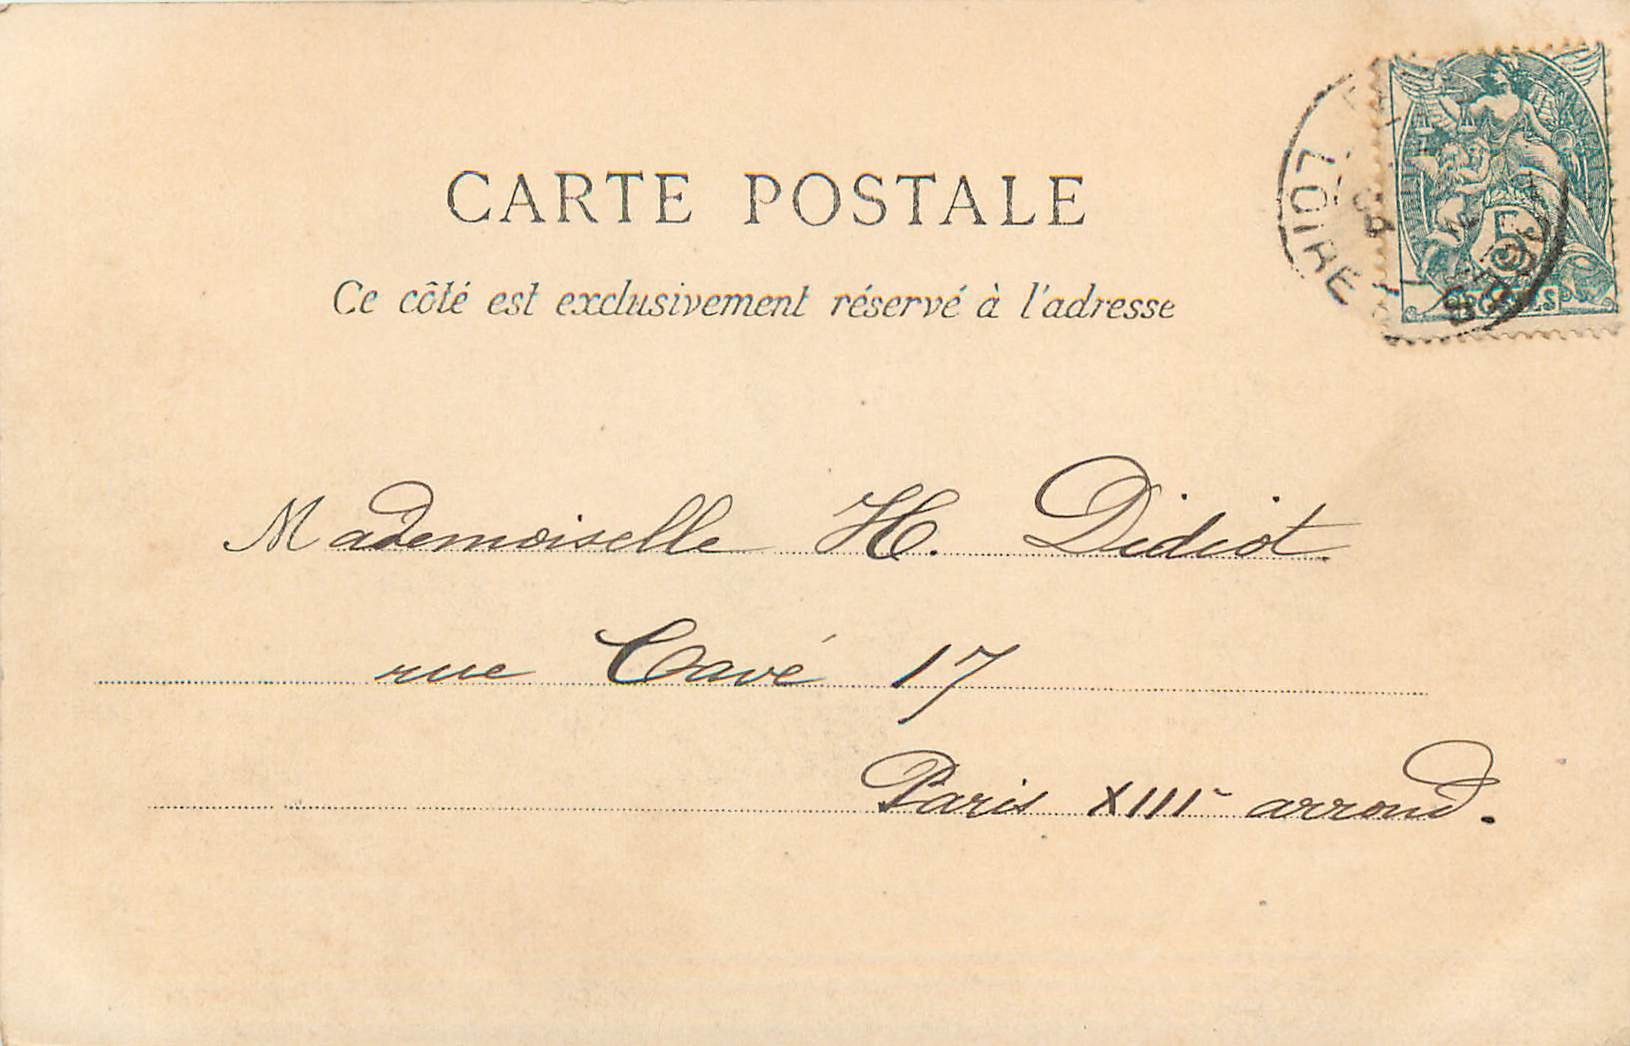 CARTE POSTALE
Ce côté est exclusivement réservé à l'adresse
LOIRE
04
POSTES
Mademoiselle H. Didiot
rue Cavé 17
Paris XIIIe arrond.